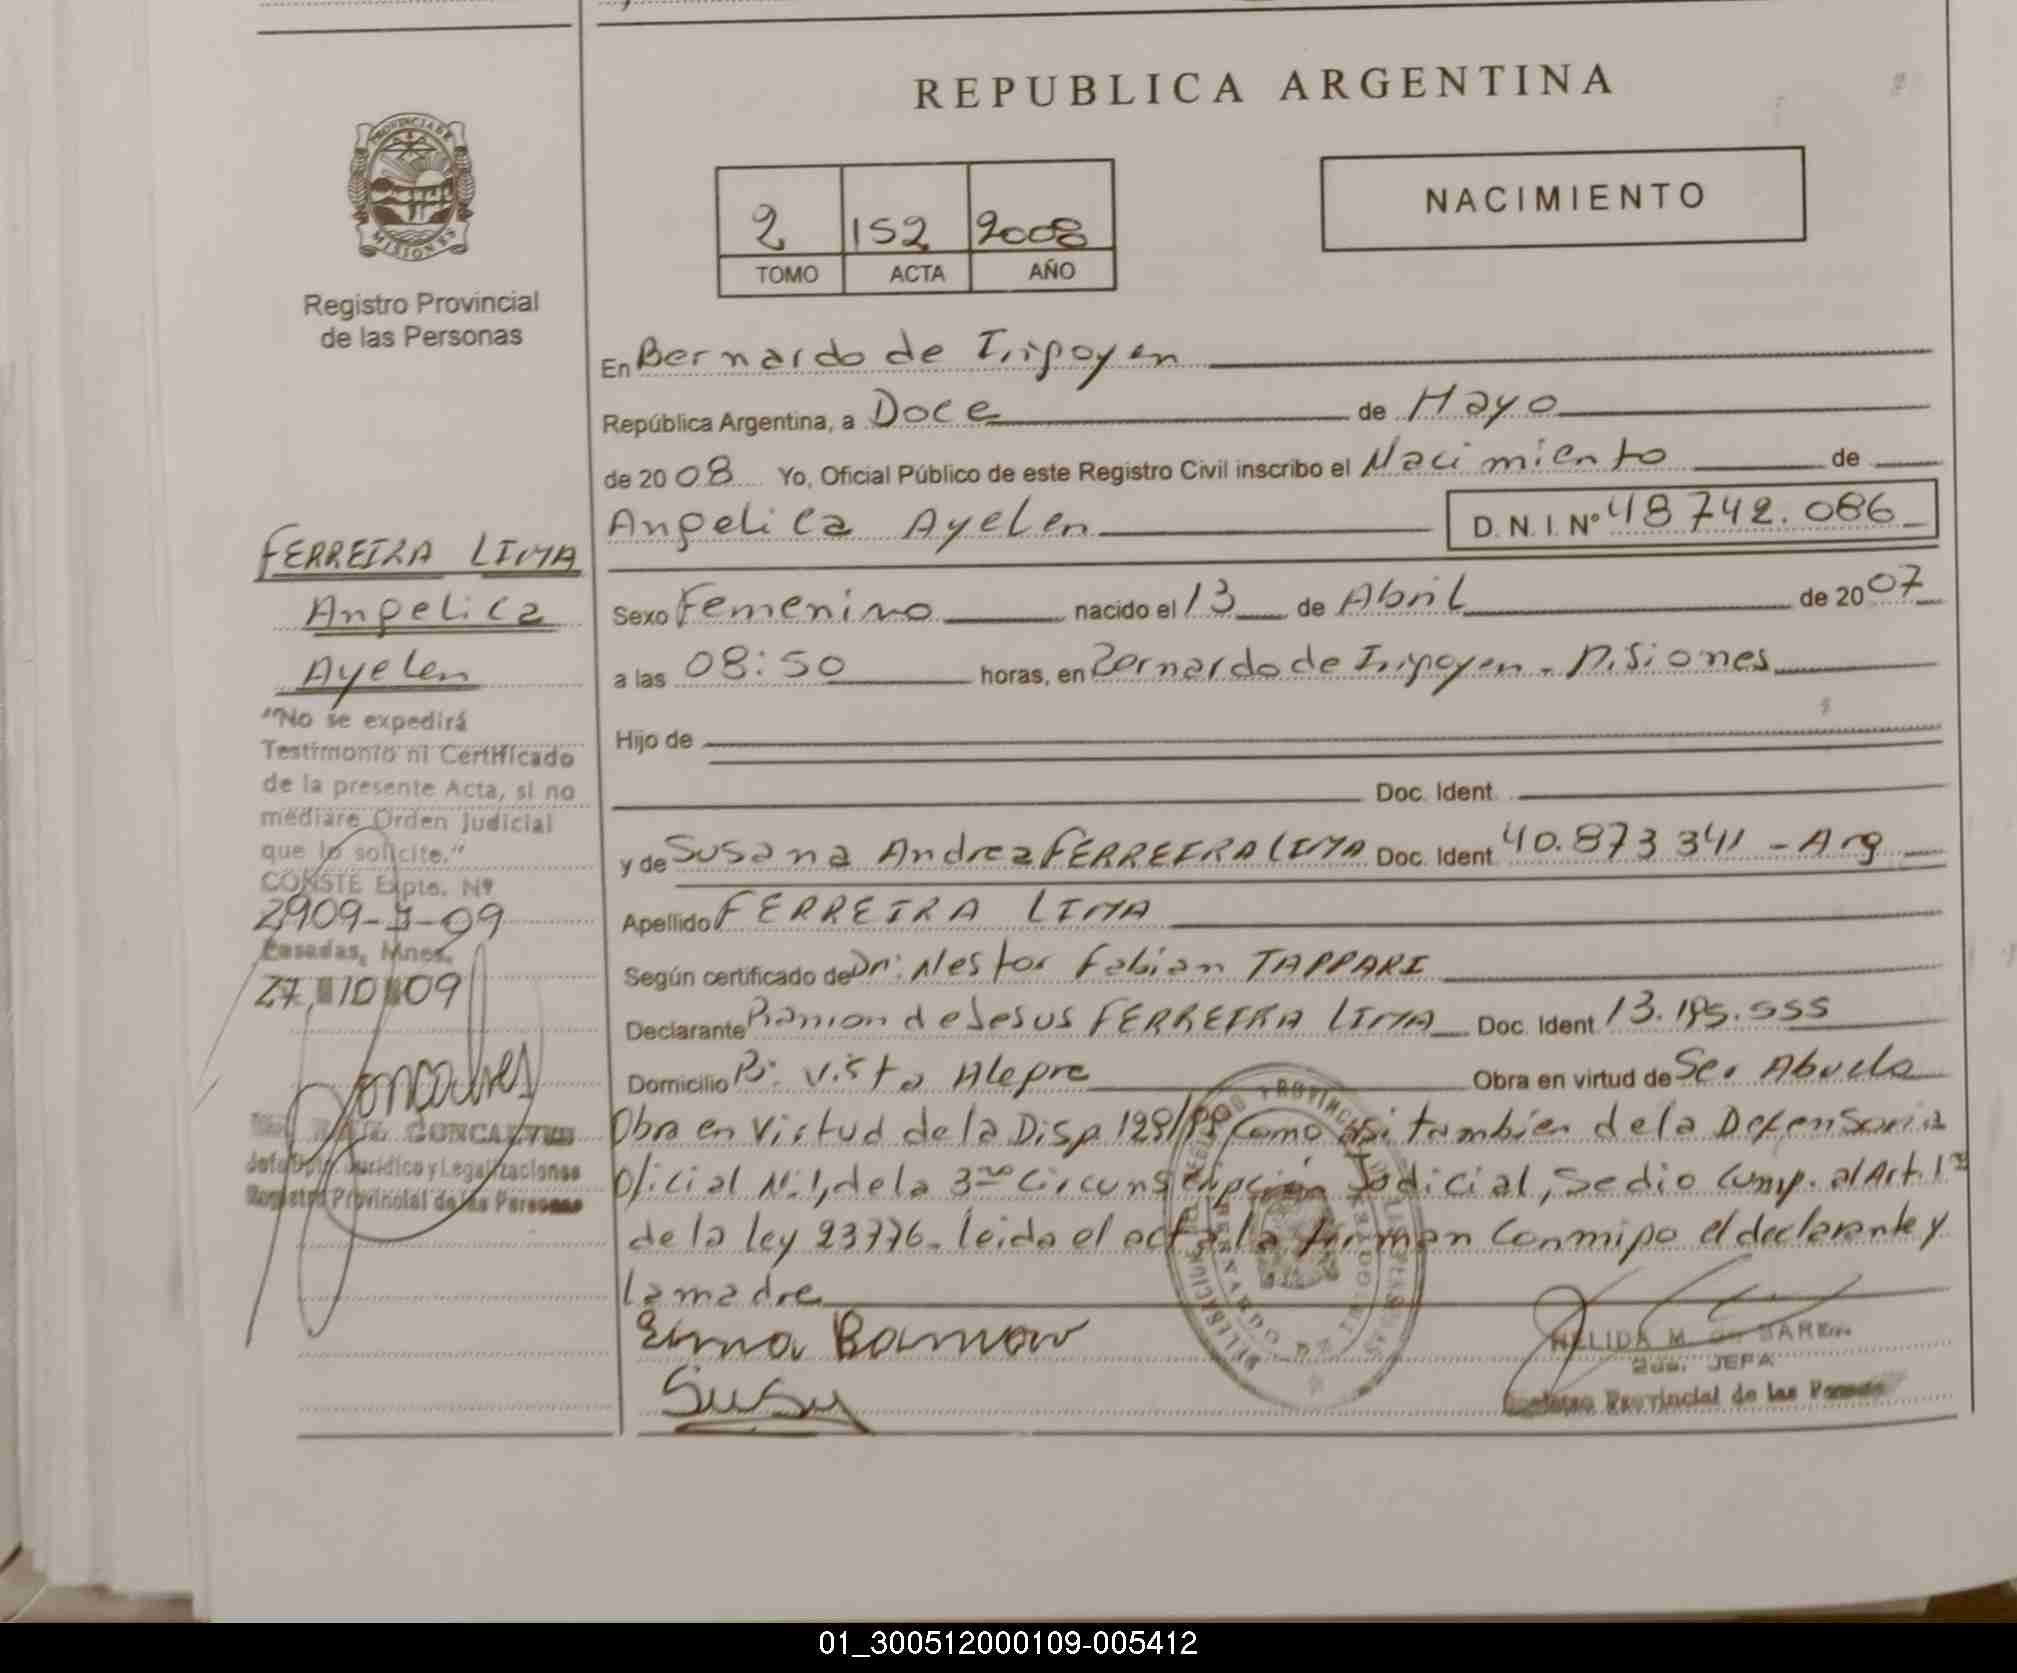 REPUBLICA ARGENTINA
PROVINCIA DE
MISIONES
Registro Provincial
de las Personas
2 152 2008
TOMO ACTA AÑO
NACIMIENTO
En Bernardo de Irigoyen
República Argentina, a Doce de Mayo
de 2008 Yo, Oficial Público de este Registro Civil inscribo el Nacimiento de
Angelica Ayelen D. N. I. Nº 48 742.086
Sexo Femenino nacido el 13 de Abril de 2007
a las 08:50 horas, en Bernardo de Irigoyen - Misiones
Hijo de
Doc. Ident.
y de Susana Andrea FERREIRA LIMA Doc. Ident 40.873 341 - Arg
Apellido FERREIRA LIMA
Según certificado de Dr: Nestor Fabian TAPPARI
Declarante Ramon de Jesus FERREIRA LIMA Doc. Ident. 13.195.555
Domicilio Bº Vista Alegre Obra en virtud de Ser Abuelo
Obra en Virtud de la Disp 129/99 Como asi tambien de la Defensoria
Oficial N: 1, de la 3ra Circunscripción Judicial, Se dio Cump. al Art. 1º
de la ley 23776. leida el acta la firman Conmigo el declarante y
la madre
Susy
NELIDA M.
JEFA
Provincial de las
FERREIRA LIMA
Angelica
Ayelen
"No se expedirá
Testimonio ni Certificado
de la presente Acta, si no
mediare Orden Judicial
que lo solicite."
CONSTE Expte. Nº
2909-J-09
Posadas, Mnes.
27 10 09
RAUL GONCALVES
Jefe Dpto. Jurídico y Legalizaciones
Registro Provincial de las Personas
01_300512000109-005412